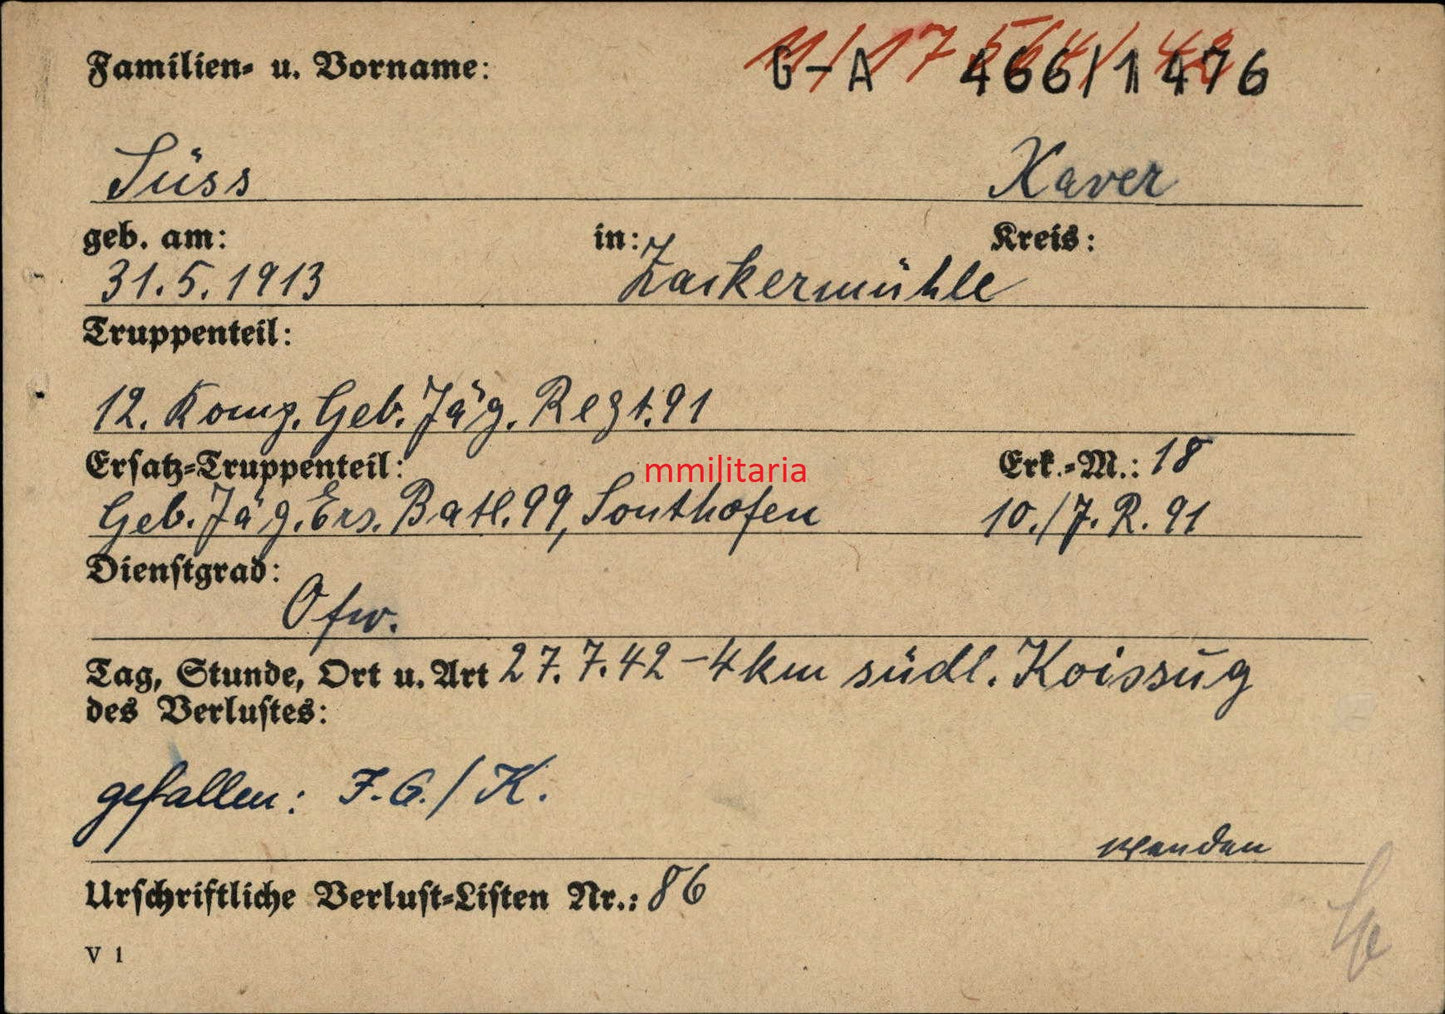 Familien- u. Vorname:
11/17 564/42
G-A 466/1476
Süss Xaver
geb. am: in: Kreis:
31.5.1913 Zackermühle
Truppenteil:
12. Komp. Geb. Jäg. Regt. 91
Ersatz-Truppenteil: Erk.-M.: 18
Geb. Jäg. Ers. Batl. 99, Sonthofen 10./J.R. 91
mmilitaria
Dienstgrad:
Ofw.
Tag, Stunde, Ort u. Art 27.7.42 - 4 km südl. Koissug
des Verlustes:
gefallen: F.G./K.
wenden
Urschriftliche Verlust-Listen Nr.: 86
V 1